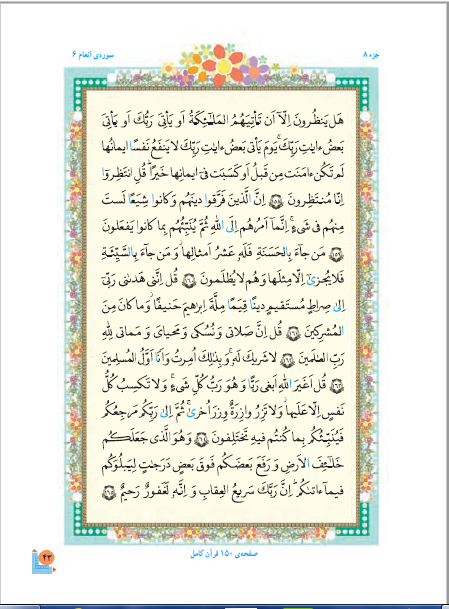 جزء ۸
سوره‌ی انعام ۶
هَل يَنظُرونَ اِلّا اَن تَأتِيَهُمُ المَلٰئِكَةُ اَو يَأتِىَ رَبُّكَ اَو يَأتِىَ
بَعضُ ءايٰتِ رَبِّكَ ۗ يَومَ يَأتى بَعضُ ءايٰتِ رَبِّكَ لا يَنفَعُ نَفسًا ايمانُها
لَم تَكُن ءامَنَت مِن قَبلُ اَو كَسَبَت فى ايمانِها خَيرًا ۗ قُلِ انتَظِروا
اِنّا مُنتَظِرونَ ۝۱۵۸ اِنَّ الَّذينَ فَرَّقوا دينَهُم وَ كانوا شِيَعًا لَستَ
مِنهُم فى شَىءٍ ۚ اِنَّما اَمرُهُم اِلَى اللّٰهِ ثُمَّ يُنَبِّئُهُم بِما كانوا يَفعَلونَ
۝۱۵۹ مَن جاءَ بِالحَسَنَةِ فَلَهُ عَشرُ اَمثالِها ۖ وَ مَن جاءَ بِالسَّيِّئَةِ
فَلا يُجزىٰ اِلّا مِثلَها وَ هُم لا يُظلَمونَ ۝۱۶۰ قُل اِنَّنى هَدٰنى رَبّى
اِلىٰ صِراطٍ مُستَقيمٍ دينًا قِيَمًا مِلَّةَ اِبرٰهيمَ حَنيفًا ۚ وَ ما كانَ مِنَ
المُشرِكينَ ۝۱۶۱ قُل اِنَّ صَلاتى وَ نُسُكى وَ مَحياىَ وَ مَماتى لِلّٰهِ
رَبِّ العٰلَمينَ ۝۱۶۲ لا شَريكَ لَهُ ۖ وَ بِذٰلِكَ اُمِرتُ وَ اَنَا اَوَّلُ المُسلِمينَ
۝۱۶۳ قُل اَغَيرَ اللّٰهِ اَبغى رَبًّا وَ هُوَ رَبُّ كُلِّ شَىءٍ ۚ وَ لا تَكسِبُ كُلُّ
نَفسٍ اِلّا عَلَيها ۚ وَ لا تَزِرُ وازِرَةٌ وِزرَ اُخرىٰ ۚ ثُمَّ اِلىٰ رَبِّكُم مَرجِعُكُم
فَيُنَبِّئُكُم بِما كُنتُم فيهِ تَختَلِفونَ ۝۱۶۴ وَ هُوَ الَّذى جَعَلَكُم
خَلٰئِفَ الاَرضِ وَ رَفَعَ بَعضَكُم فَوقَ بَعضٍ دَرَجٰتٍ لِيَبلُوَكُم
فيما ءاتٰىكُم ۗ اِنَّ رَبَّكَ سَريعُ العِقابِ وَ اِنَّهُ لَغَفورٌ رَحيمٌ ۝۱۶۵
صفحه‌ی ۱۵۰ قرآن کامل
۴۳